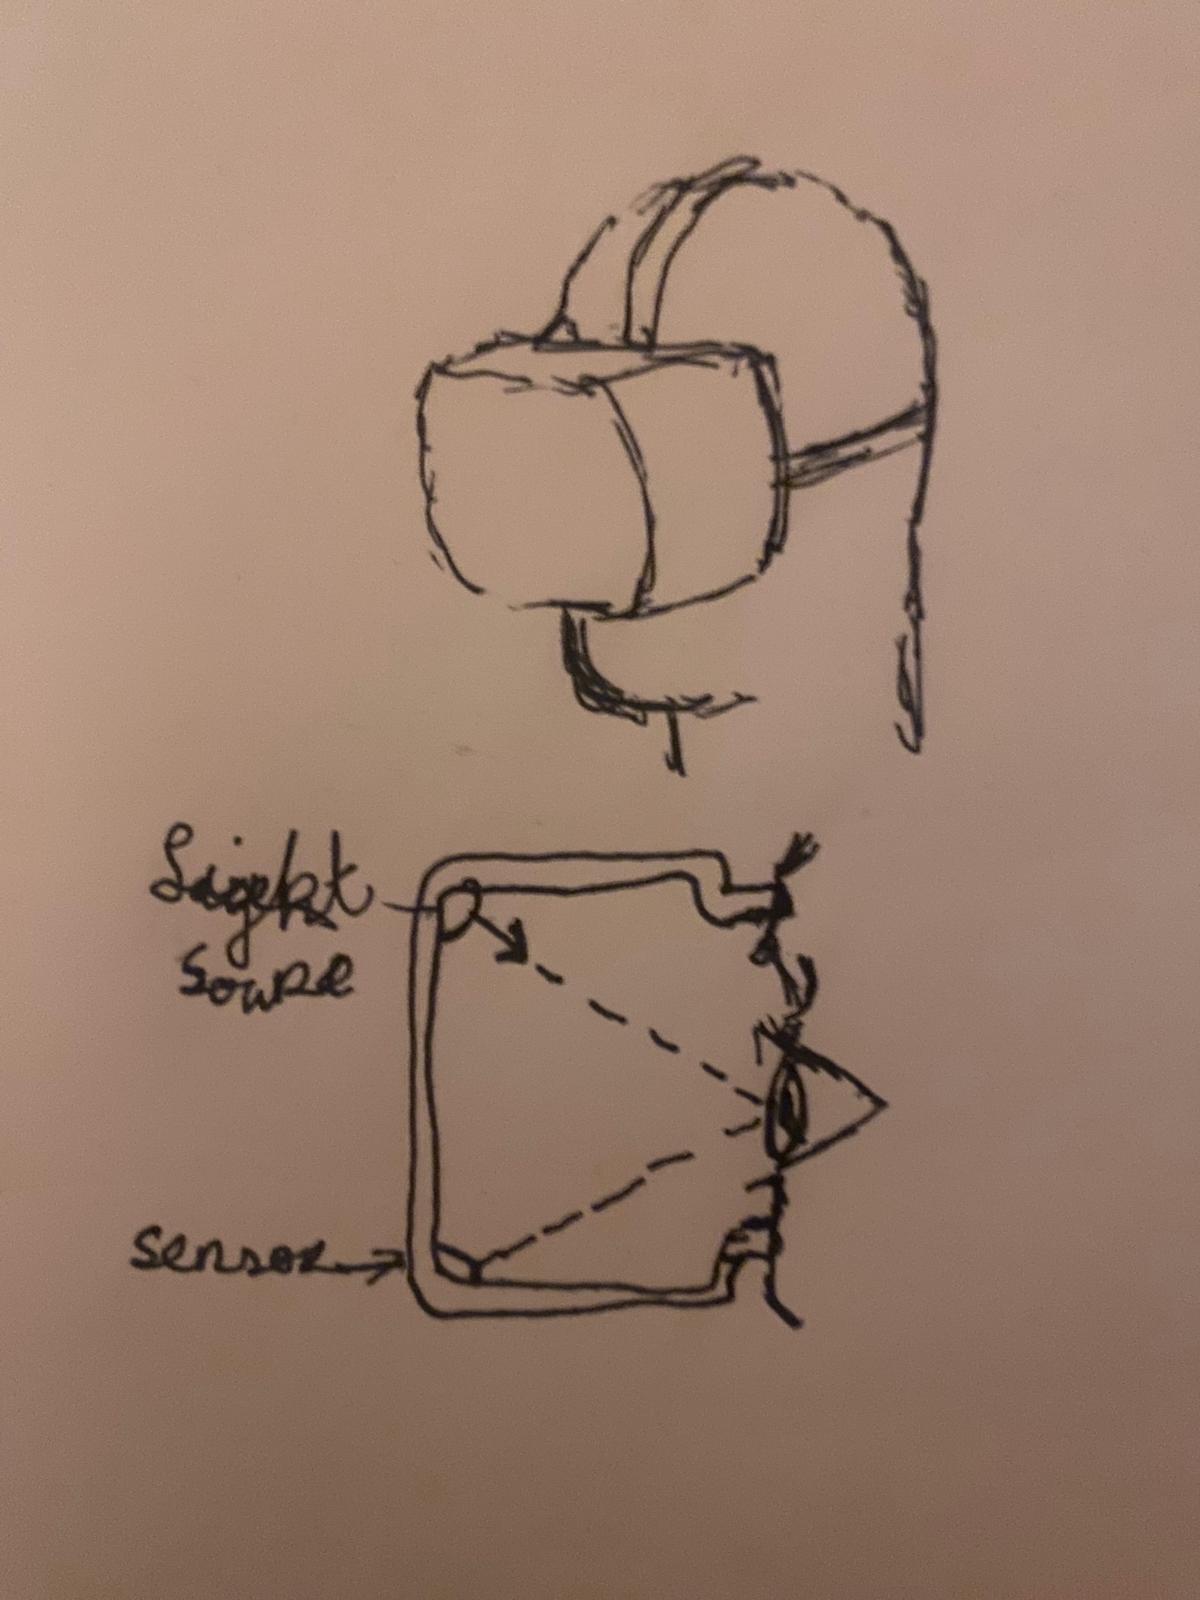 Light
Source
sensor